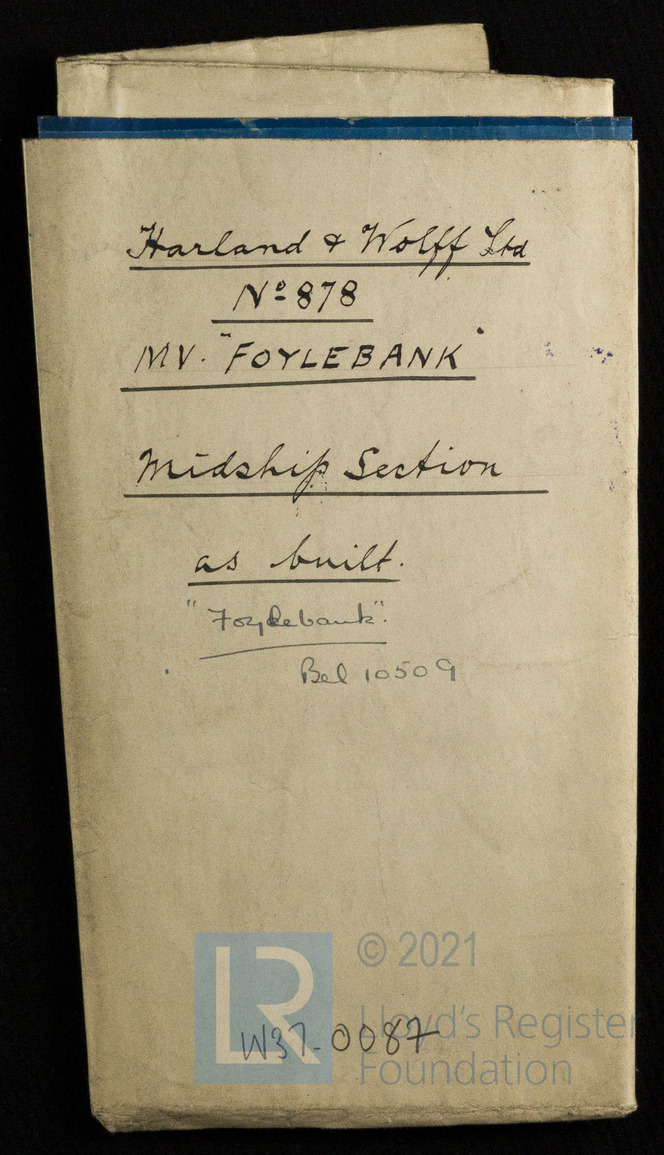 Harland & Wolff Ltd
Nº 878
MV. "FOYLEBANK"
Midship Section
as built.
"Foylebank".
Bel 10509
LR
© 2021
Lloyd's Register
Foundation
W37-0087